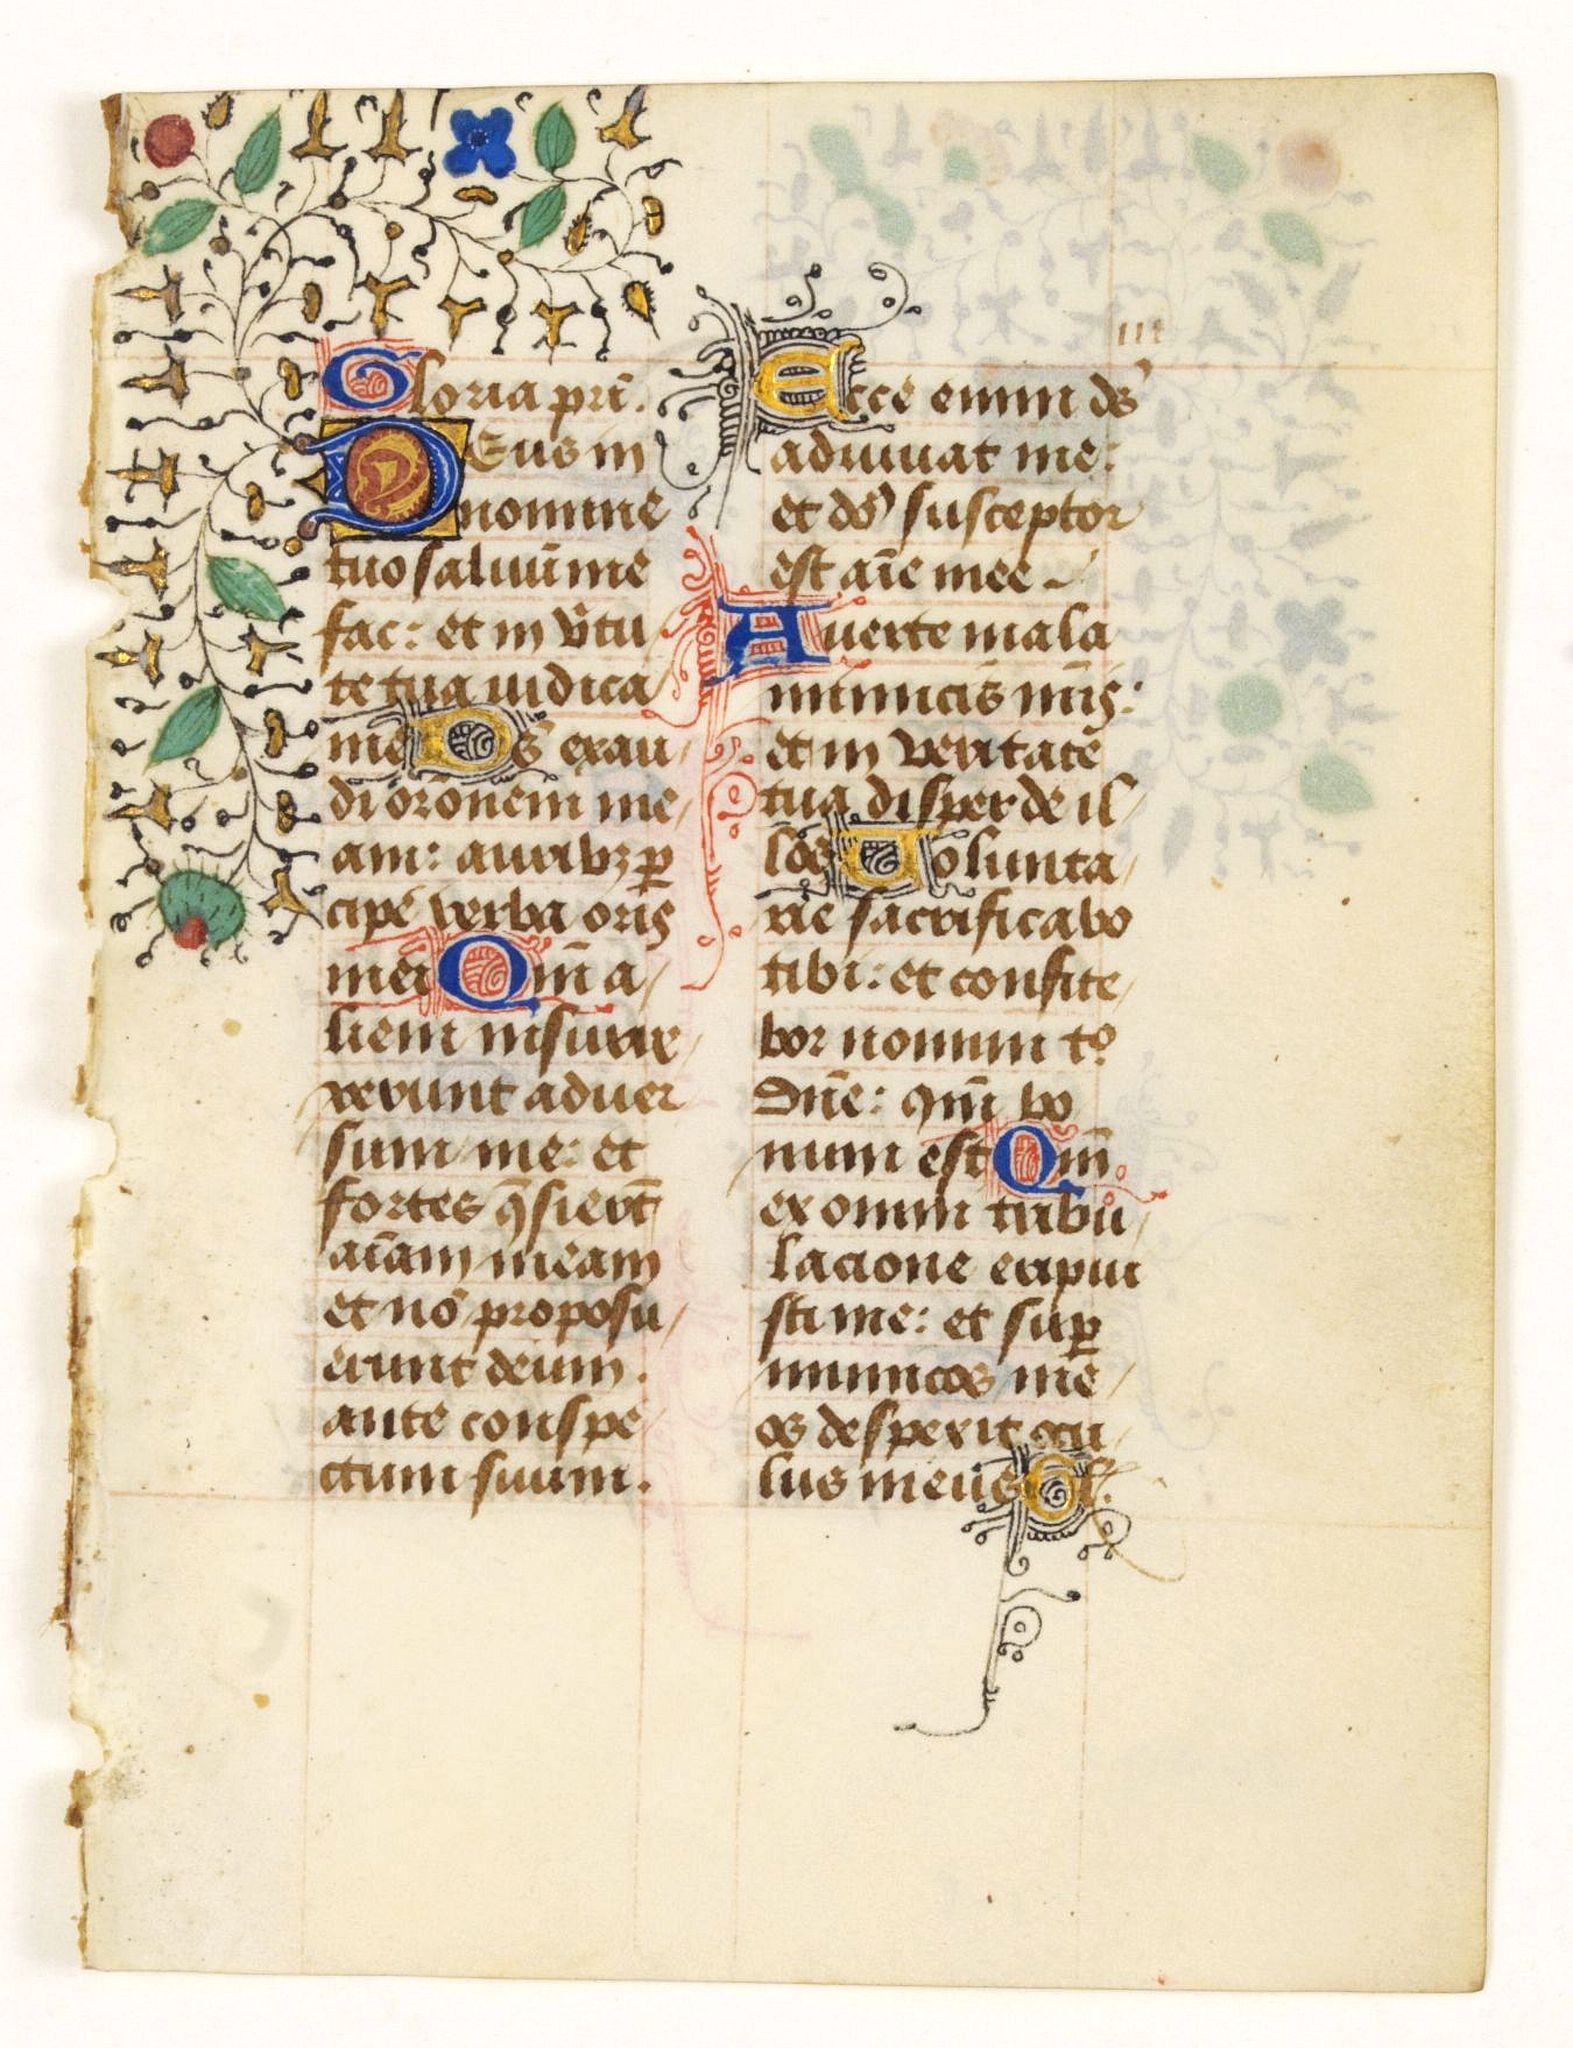 Gloria pri̅.
DEus in
nomine
tuo saluu̅ me
fac: et in v̅tu
te tua iudica
me Ds̅ exau
di or̅onem me
am: auribꝫ ꝑ
cipe verba oris
mei Qm̅ a
lieni insurre
xerunt aduer
sum me: et
fortes q̅sieru̅t
ai̅am meam
et no̅ proposu
erunt deum
ante conspe
ctum suum.
iii
Ecce enim ds̅
adiuuat me:
et ds̅ susceptor
est ai̅e mee
Auerte mala
inimicis m̅is:
et in veritate
tua disperde il
los Volunta
rie sacrificabo
tibi: et confite
bor nomini tᵒ
Dn̅e: qm̅ bo
num est Qm̅
ex omni tribu
lacione eripui
sti me: et suꝑ
inimicos me
os despexit ocu
lus meus Gl.